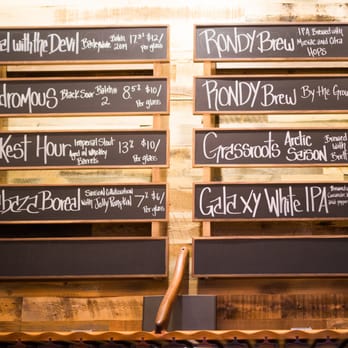 with the Devil Barleywine Batch 2014 17.3% $12/ Per glass
dromous Black Sour Batch 2 8.5% $10/ Per glass
kest Hour Imperial Stout Aged in Whiskey Barrels 13% $10/ Per glass
baza Boreal Saison Collaboration with Jolly Pumpkin 7% $6/ Per glass
RONDY Brew IPA Brewed with Mosaic and Citra Hops
RONDY Brew By the Grow
Grassroots Arctic Saison Brewed with
Galaxy White IPA Brewed